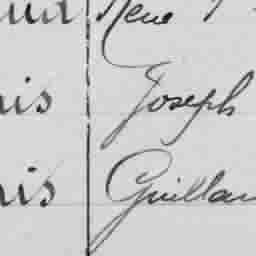 René
is Joseph
is Guillau